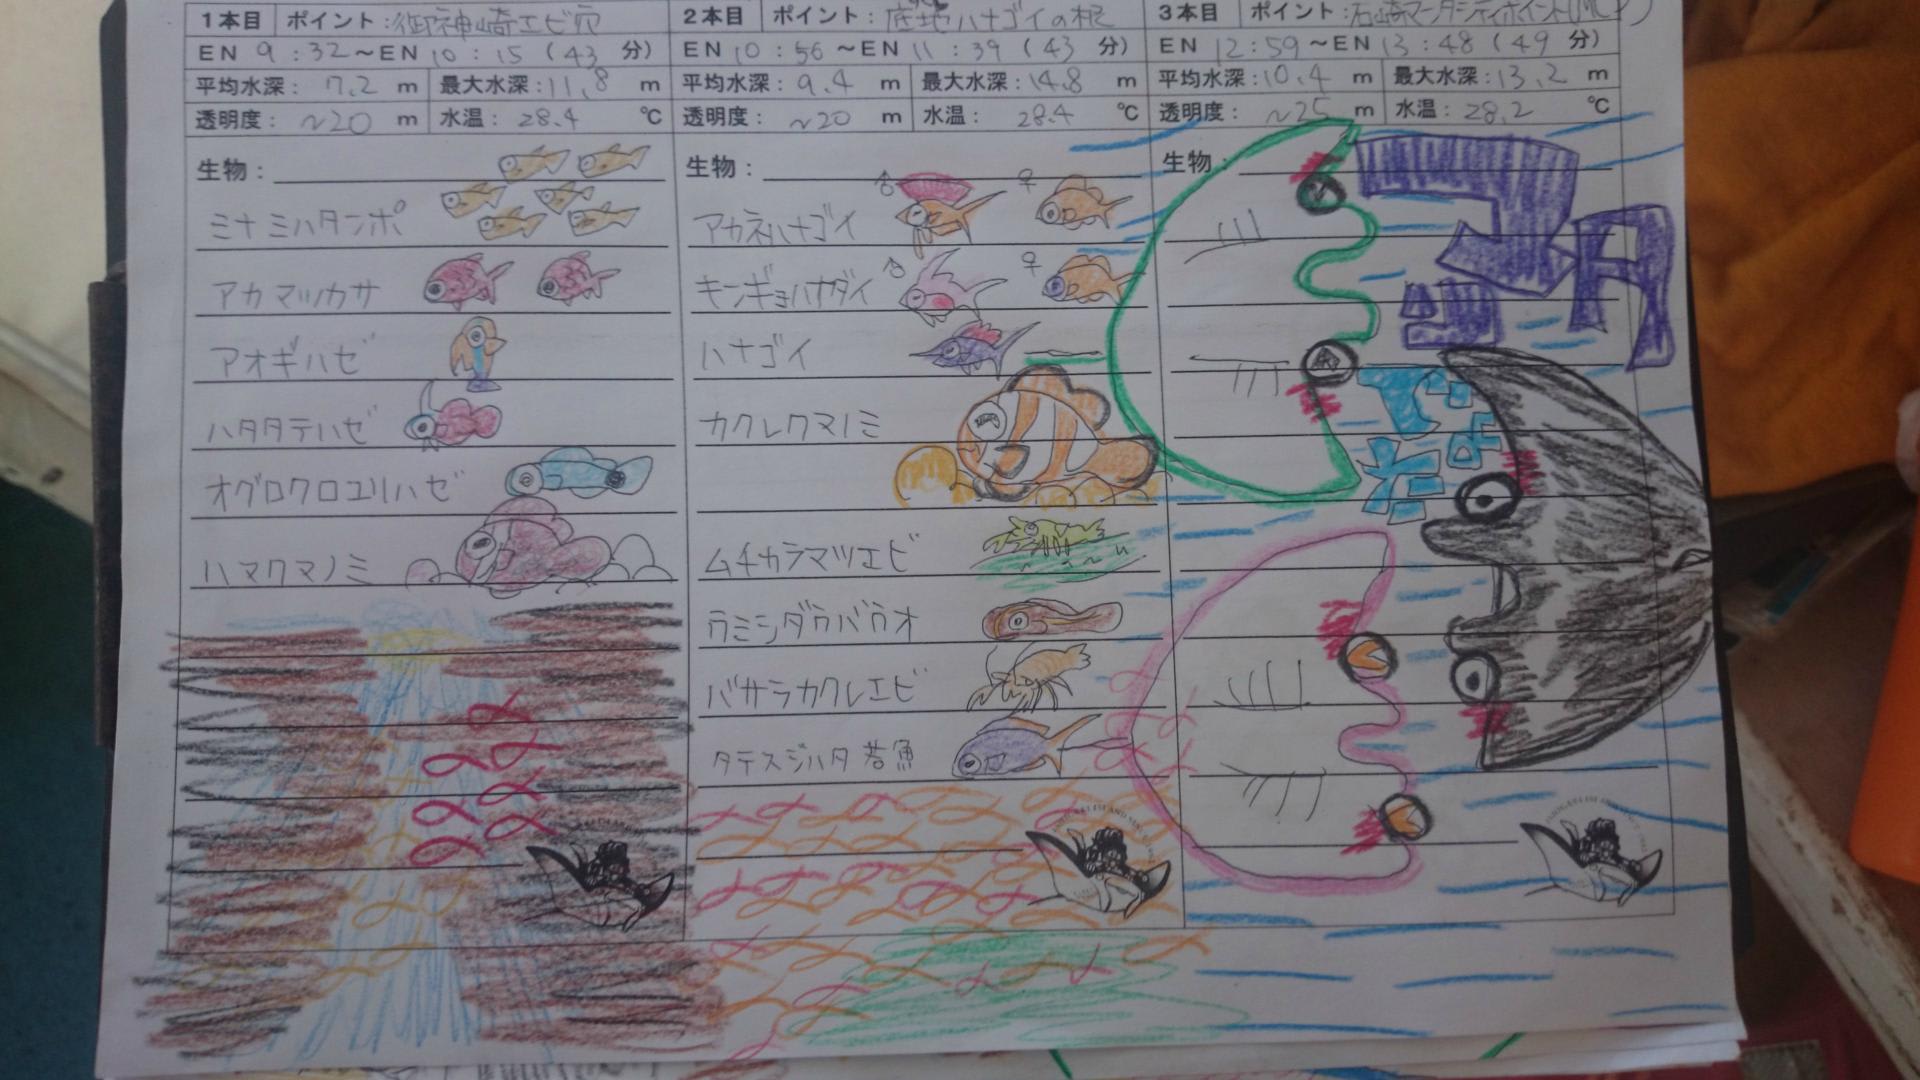 1本目 ポイント:御神崎エビ穴
EN 9:32〜EN 10:15(43分)
平均水深:7.2 m 最大水深:11.8 m
透明度:〜20 m 水温:28.4 ℃
生物:
ミナミハタンポ
アカマツカサ
アオギハゼ
ハタタテハゼ
オグロクロユリハゼ
ハマクマノミ
2本目 ポイント:底地ハナゴイの根
EN 10:56〜EN 11:39(43分)
平均水深:9.4 m 最大水深:14.8 m
透明度:〜20 m 水温:28.4 ℃
生物:
♂ ♀
アカネハナゴイ
♂ ♀
キンギョハナダイ
ハナゴイ
カクレクマノミ
ムチカラマツエビ
ウミシダウバウオ
バサラカクレエビ
タテスジハタ 若魚
3本目 ポイント:石崎マンタシティポイント
EN 12:59〜EN 13:48(49分)
平均水深:10.4 m 最大水深:13.2 m
透明度:〜25 m 水温:28.2 ℃
生物: